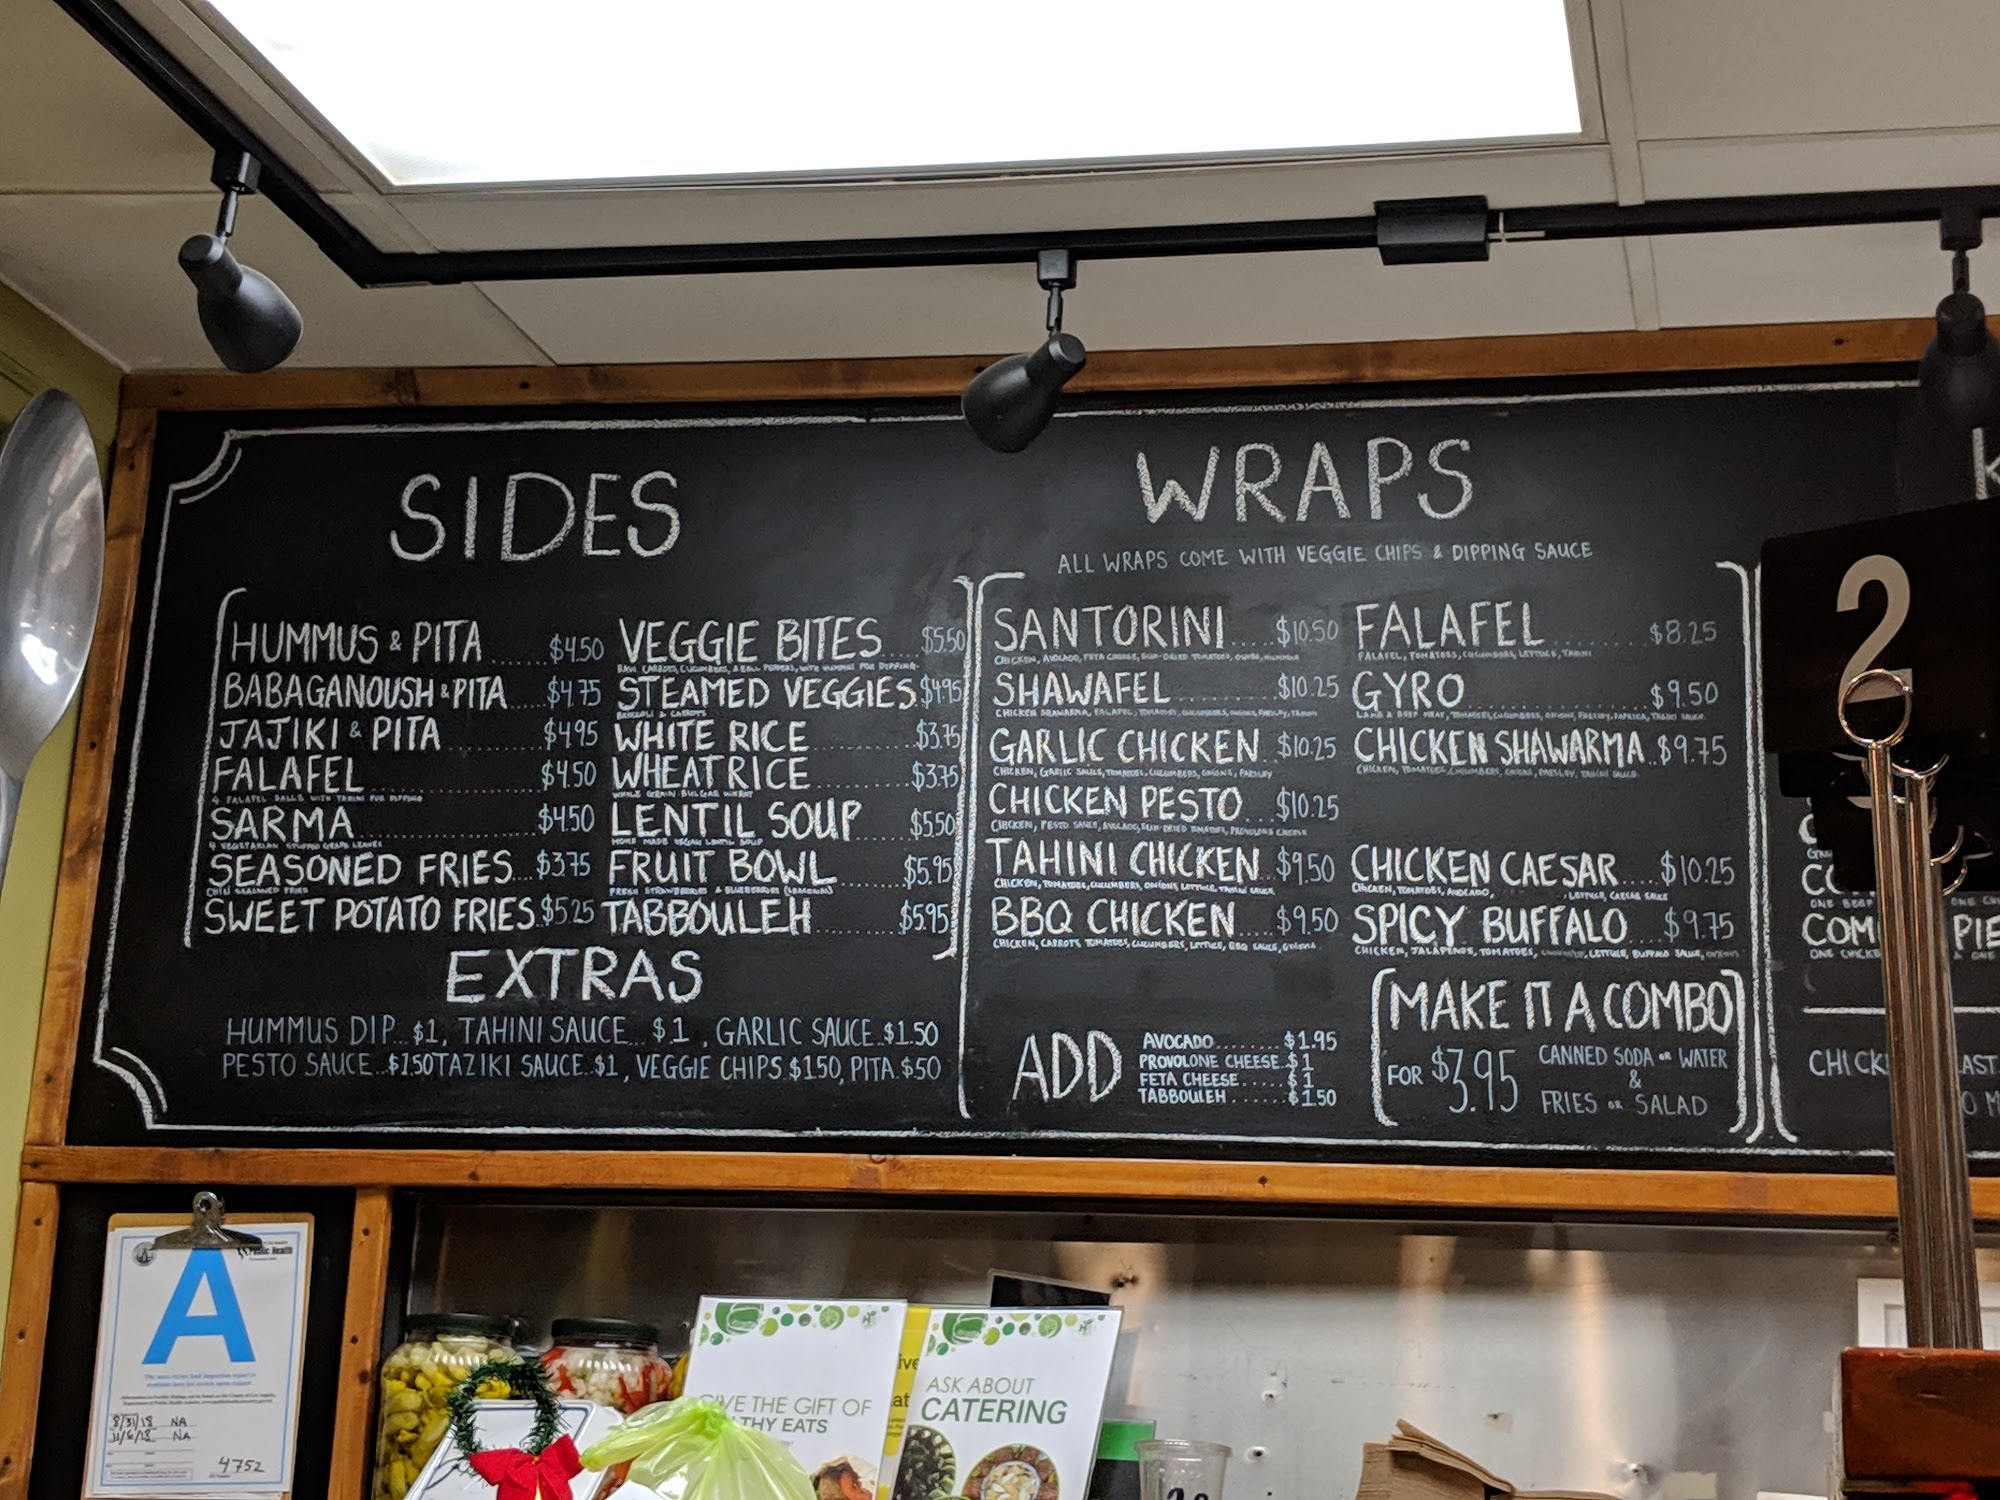 SIDES
HUMMUS & PITA ...... $4.50
BABAGANOUSH & PITA ... $4.75
JAJIKI & PITA ........ $4.95
FALAFEL ........ $4.50
4 FALAFEL BALLS WITH TAHINI FOR DIPPING
SARMA ........ $4.50
4 VEGETARIAN STUFFED GRAPE LEAVES
SEASONED FRIES ... $3.75
CHILI SEASONED FRIES
SWEET POTATO FRIES $5.25
VEGGIE BITES .... $5.50
STEAMED VEGGIES $4.95
BROCCOLI & CARROTS
WHITE RICE ........ $3.75
WHEAT RICE ........ $3.75
LENTIL SOUP .... $5.50
HOME MADE VEGAN LENTIL SOUP
FRUIT BOWL ...... $5.95
FRESH STRAWBERRIES & BLUEBERRIES (SEASONAL)
TABBOULEH ........ $5.95
EXTRAS
HUMMUS DIP... $1, TAHINI SAUCE... $1, GARLIC SAUCE..$1.50
PESTO SAUCE...$1.50 TAZIKI SAUCE..$1, VEGGIE CHIPS.$1.50, PITA.$.50
WRAPS
ALL WRAPS COME WITH VEGGIE CHIPS & DIPPING SAUCE
SANTORINI ..... $10.50
CHICKEN, AVOCADO, FETA CHEESE, SUN-DRIED TOMATOES, HUMMUS
SHAWAFEL ........ $10.25
CHICKEN SHAWARMA, FALAFEL, TOMATOES, CUCUMBERS, ONIONS, PARSLEY, TAHINI
GARLIC CHICKEN .. $10.25
CHICKEN, GARLIC SAUCE, TOMATOES, CUCUMBERS, ONIONS, PARSLEY
CHICKEN PESTO ... $10.25
CHICKEN, PESTO SAUCE, AVOCADO, SUN-DRIED TOMATOES, PROVOLONE CHEESE
TAHINI CHICKEN .. $9.50
CHICKEN, TOMATOES, CUCUMBERS, ONIONS, LETTUCE, TAHINI SAUCE
BBQ CHICKEN .... $9.50
CHICKEN, CARROTS, TOMATOES, CUCUMBERS, LETTUCE, BBQ SAUCE,
FALAFEL ........ $8.25
FALAFEL, TOMATOES, CUCUMBERS, LETTUCE, TAHINI
GYRO ........ $9.50
LAMB & BEEF MEAT, TOMATOES, CUCUMBERS, ONIONS, PARSLEY, PAPRIKA, SAUCE
CHICKEN SHAWARMA .. $9.75
CHICKEN, TOMATOES, CUCUMBERS, ONIONS, PARSLEY, TAHINI SAUCE
CHICKEN CAESAR .... $10.25
CHICKEN, TOMATOES, AVOCADO, , LETTUCE, CAESAR SAUCE
SPICY BUFFALO .... $9.75
CHICKEN, JALAPENOS, TOMATOES, LETTUCE, BUFFALO SAUCE,
ADD
AVOCADO ..... $1.95
PROVOLONE CHEESE..$1
FETA CHEESE ..... $1
TABBOULEH ...... $1.50
MAKE IT A COMBO
FOR $3.95
CANNED SODA OR WATER
&
FRIES OR SALAD
2
K
COM PIE
ONE CHICK & ONE
CHICK AST
Public Health
A
8/31/18 NA
11/6/18 NA
4752
GIVE THE GIFT OF
LTHY EATS
ASK ABOUT
CATERING